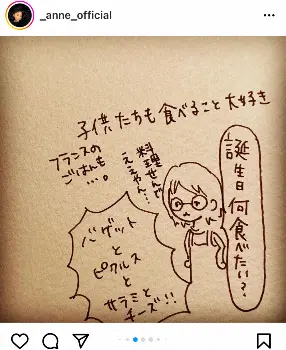 _anne_official
子供たちも食べること大好き
誕生日何食べたい?
料理せんや
ええやん…
フランスの
ごはんも
…。
バゲット
と
ピクルス
と
サラミと
チーズ!!